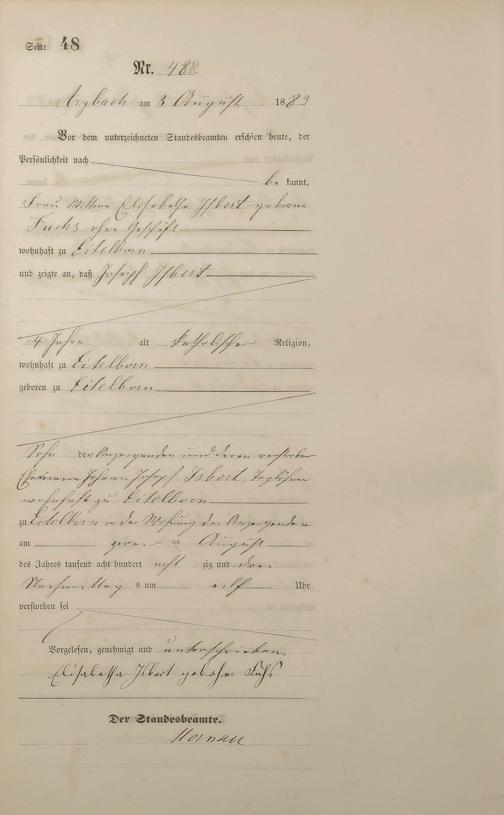 Seite 48
Nr. 48.
Arzbach am 3 August 1883
Vor dem unterzeichneten Standesbeamten erschien heute, der
Persönlichkeit nach
be kannt,
Frau Wittwe Elisabetha Isbert geborne
Fuchs ohne Geschäft
wohnhaft zu Eitelborn
und zeigte an, daß Joseph Isbert
4 Jahre alt katholischer Religion,
wohnhaft zu Eitelborn
geboren zu Eitelborn
Sohn der Anzeigenden und deren verstorbenen
Ehemann Johann Joseph Isbert, Taglöhner
wohnhaft zu Eitelborn
zu Eitelborn in der Wohnung der Anzeigenden
am zweiten August
des Jahres tausend acht hundert acht zig und drei
Nachmittags um elf Uhr
verstorben sei
Vorgelesen, genehmigt und unterschrieben
Elisabetha Isbert geborne Fuchs
Der Standesbeamte.